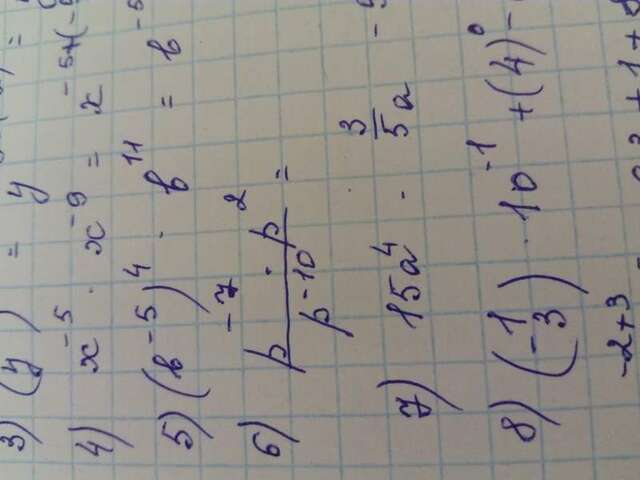 3) (y ) = y =
4) x⁻⁵ · x⁻⁹ = x⁻⁵⁺⁽⁻
5) (b⁻⁵)⁴ · b¹¹ = b⁻⁵
6) (p⁻⁷ · p²)/p⁻¹⁰ =
7) 15a⁴ · 3/5a -
8) (-1/3) · 10⁻¹ + (4)⁰ -
-2+3